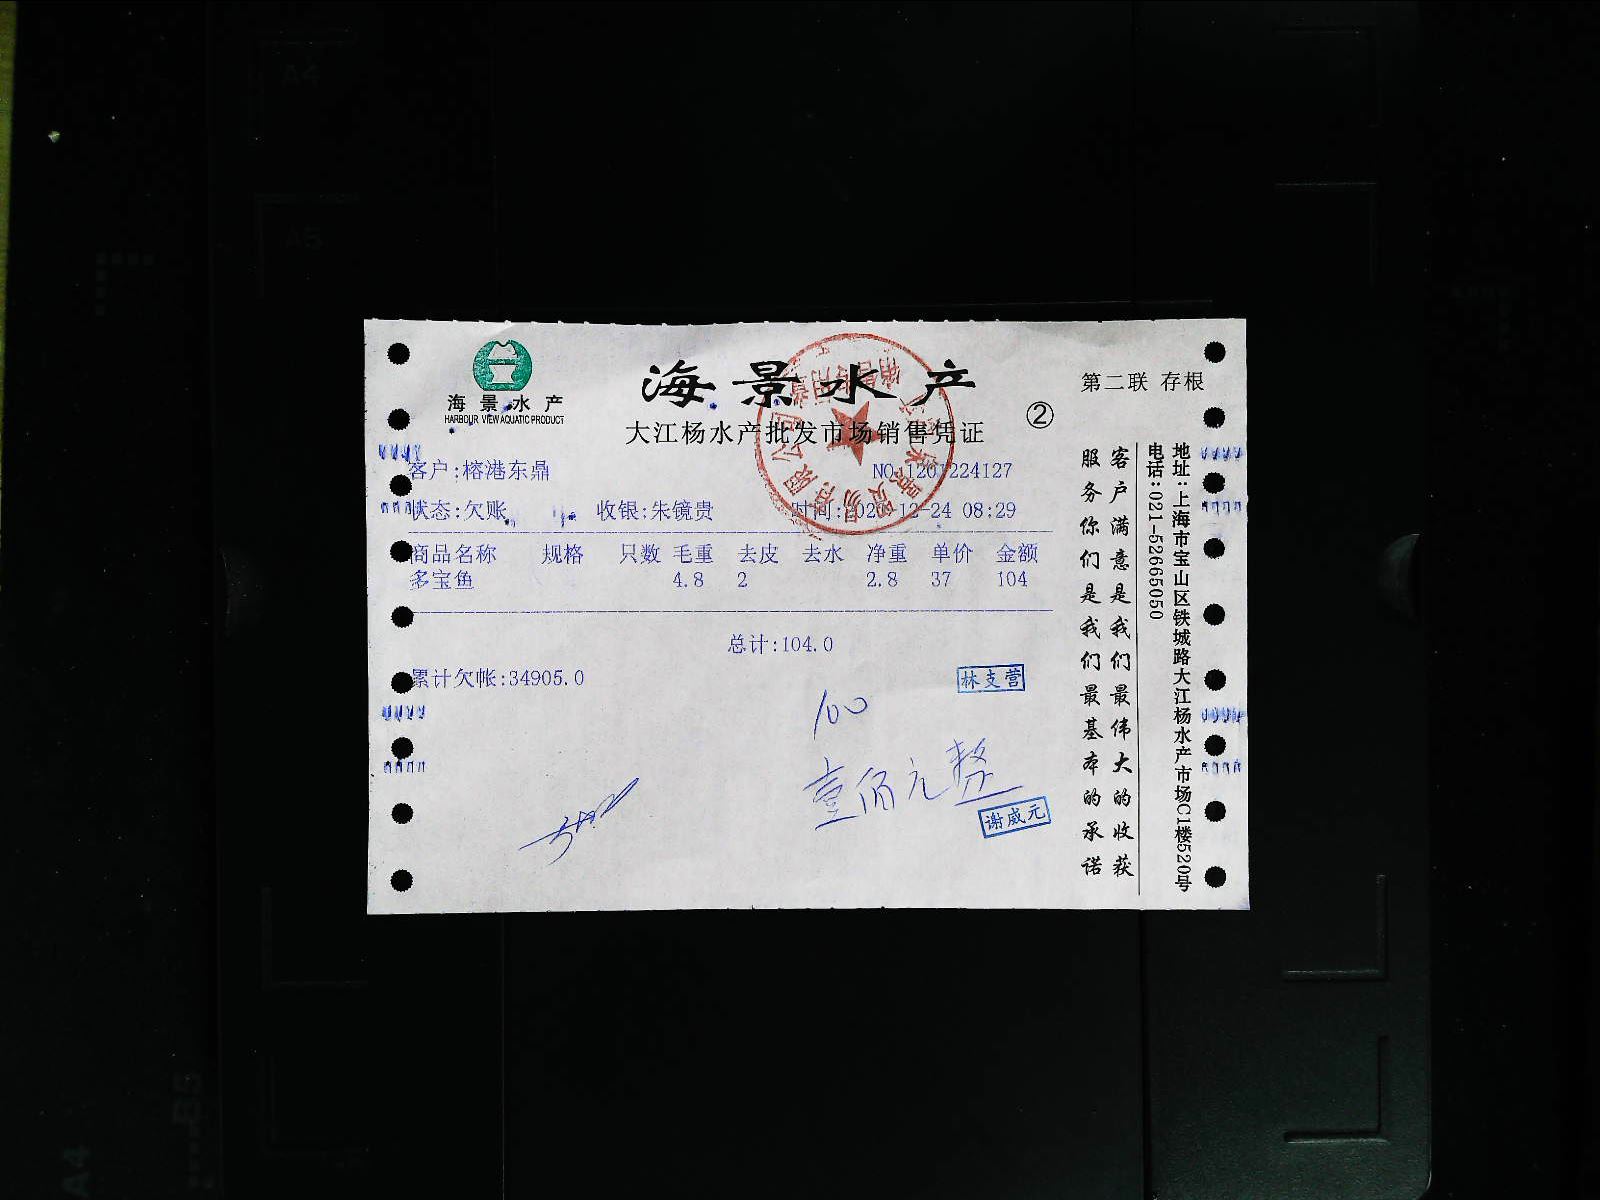 海景水产
HARBOUR VIEW AQUATIC PRODUCT
海景水产
第二联 存根
大江杨水产批发市场销售凭证
②
客户:榕港东鼎
NO:1201224127
状态:欠账
收银:朱镜贵
时间:2020-12-24 08:29
商品名称 规格 只数 毛重 去皮 去水 净重 单价 金额
多宝鱼 4.8 2 2.8 37 104
总计:104.0
累计欠帐:34905.0
林支营
100
壹佰元整
谢威元
客户满意是我们最伟大的收获
服务你们是我们最基本的承诺
地址:上海市宝山区铁城路大江杨水产市场C1楼520号
电话:021-52665050
A4
A5
B5
A4